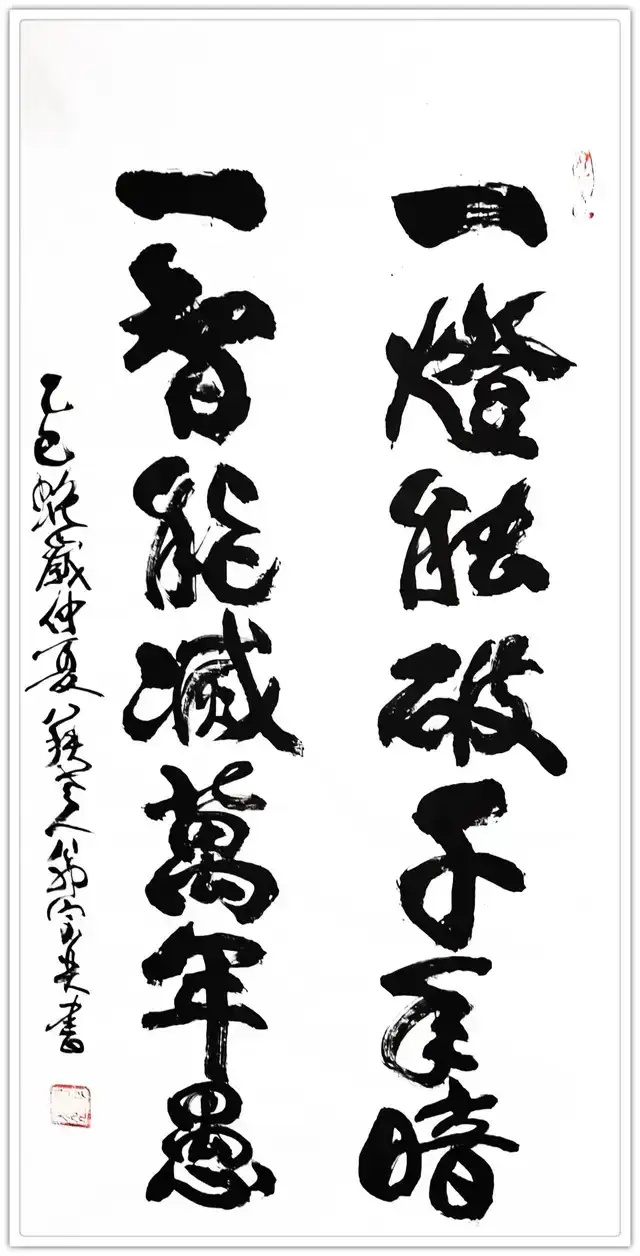 一燈能破千年暗
一智能滅萬年愚
乙巳蛇歲仲夏八秩老人翁宗書